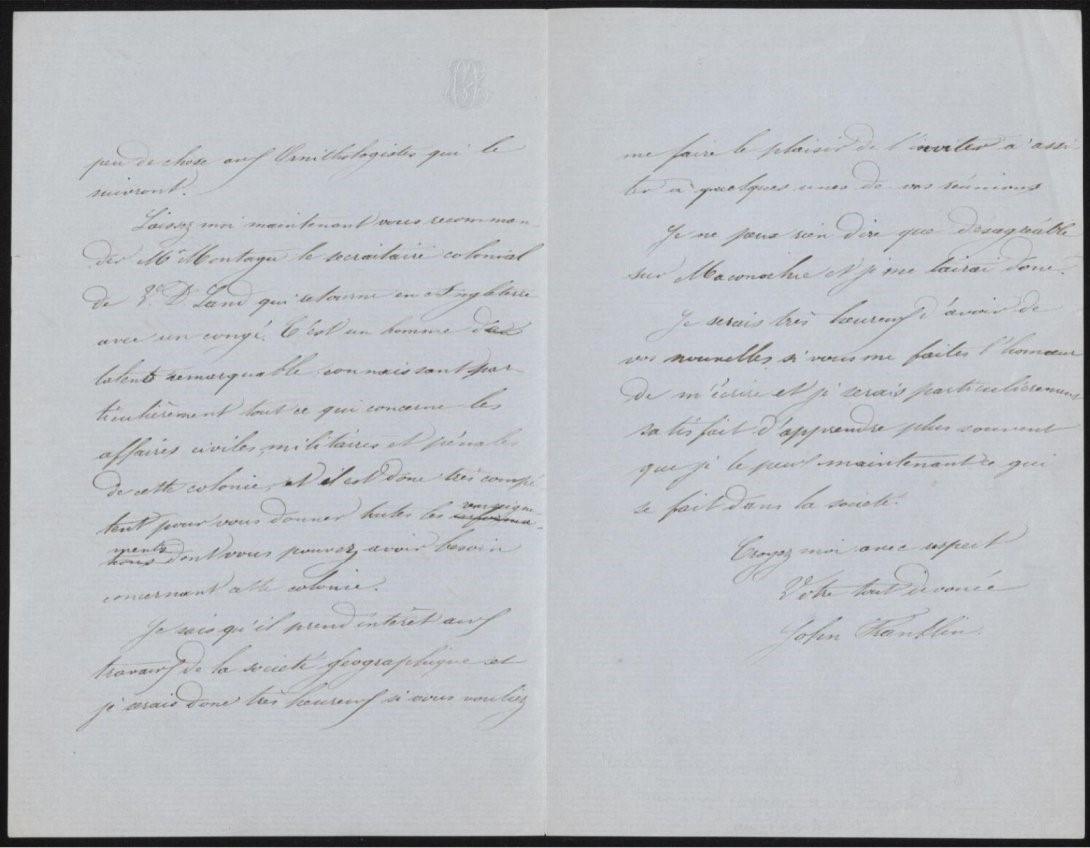 peu de chose aux Ornithologistes qui le
suivront.
Laissez moi maintenant vous recomman-
der Mr Montagu le secraitaire colonial
de V. D. Land qui retourne en Angleterre
avec un congé. C'est un homme de
talent remarquable connaissant par-
ticulièrement tout ce qui concerne les
affaires civiles, militaires et pénales
de cette colonie, et il est donc très compé-
tent pour vous donner toutes les renseigne-
ments dont vous pouvez avoir besoin
concernant cette colonie.
Je sais qu'il prend interêt aux
travaux de la societé géographique et
je serais donc très heureux si vous vouliez
me faire le plaisir de l'inviter a assis
ter a quelques unes de vos réunions
Je ne peux rien dire que désagréable
sur Maconochie et je me tairai donc.
Je serais très heureux d'avoir de
vos nouvelles si vous me faites l'honneur
de m'écrire et je serais particulièrement
satisfait d'apprendre plus souvent
que je le peux maintenant ce qui
se fait dans la societé.
Croyez moi avec respect
Votre tout devouée
John Franklin.